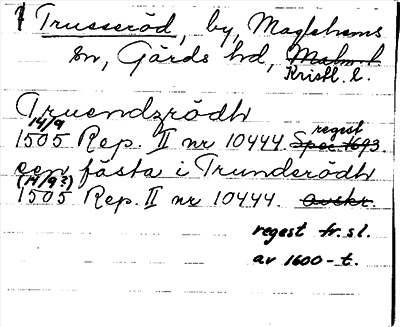 1 Trusseröd, by, Maglehems
sn, Gärds hd, Malm. l.
Kristl. l.
Truendzrödh
14/9
1505 Rep. II nr 10444. Spec 1693. regest
een fästa i Trunderödh
(14/9?)
1505 Rep. II nr 10444. avskr.
regest fr. sl.
av 1600-t.